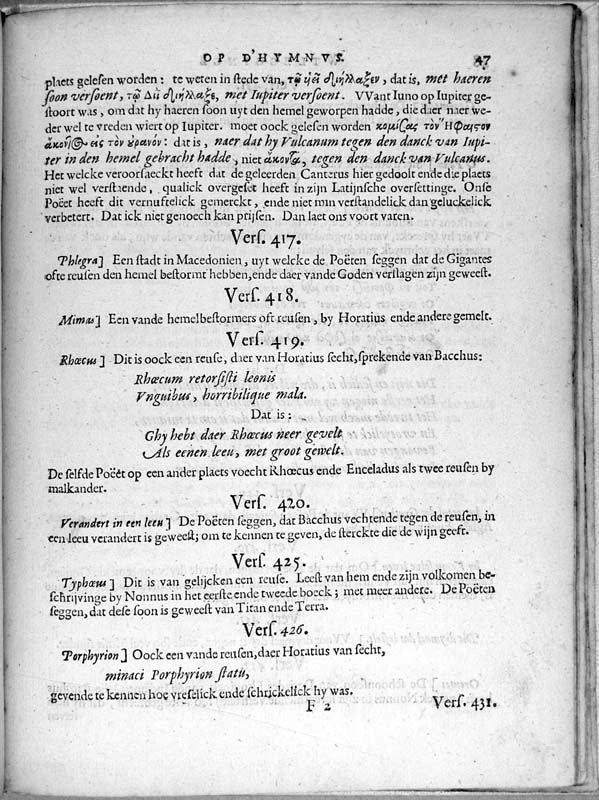 OP D'HYMNVS. 47
plaets gelesen worden: te weten in stede van, τῷ υἱεῖ διήλλαξεν, dat is, met haeren
soon versoent, τῷ Διὶ διήλλαξε, met Iupiter versoent. VVant Iuno op Iupiter ge-
stoort was, om dat hy haeren soon uyt den hemel geworpen hadde, die daer naer we-
der wel te vreden wiert op Iupiter. moet oock gelesen worden κομίζας τὸν Ἥφαιστον
ἄκοντος εἰς τὸν ὐρανόν: dat is, naer dat hy Vulcanum tegen den danck van Iupi-
ter in den hemel gebracht hadde, niet ἄκοντα, tegen den danck van Vulcanus.
Het welcke veroorsaeckt heeft dat de geleerden Canterus hier gedoolt ende die plaets
niet wel verstaende, qualick overgeset heeft in zijn Latijnsche oversettinge. Onse
Poët heeft dit vernuftelick gemerckt, ende niet min verstandelick dan geluckelick
verbetert. Dat ick niet genoech kan prijsen. Dan laet ons voort varen.
Vers. 417.
Phlegra] Een stadt in Macedonien, uyt welcke de Poëten seggen dat de Gigantes
ofte reusen den hemel bestormt hebben, ende daer vande Goden verslagen zijn geweest.
Vers. 418.
Mimas] Een vande hemelbestormers oft reusen, by Horatius ende andere gemelt.
Vers. 419.
Rhœcus] Dit is oock een reuse, daer van Horatius secht, sprekende van Bacchus:
Rhœcum retorsisti leonis
Vnguibus, horribilique mala.
Dat is:
Ghy hebt daer Rhœcus neer gevelt
Als eenen leeu, met groot gewelt.
De selfde Poëet op een ander plaets voecht Rhœcus ende Enceladus als twee reusen by
malkander.
Vers. 420.
Verandert in een leeu] De Poëten seggen, dat Bacchus vechtende tegen de reusen, in
een leeu verandert is geweest; om te kennen te geven, de sterckte die de wijn geeft.
Vers. 425.
Typhœus] Dit is van gelijcken een reuse. Leest van hem ende zijn volkomen be-
schrijvinge by Nonnus in het eerste ende tweede boeck; met meer andere. De Poëten
seggen, dat dese soon is geweest van Titan ende Terra.
Vers. 426.
Porphyrion] Oock een vande reusen, daer Horatius van secht,
minaci Porphyrion statu,
gevende te kennen hoe vreselick ende schrickelick hy was.
F 2 Vers. 431.